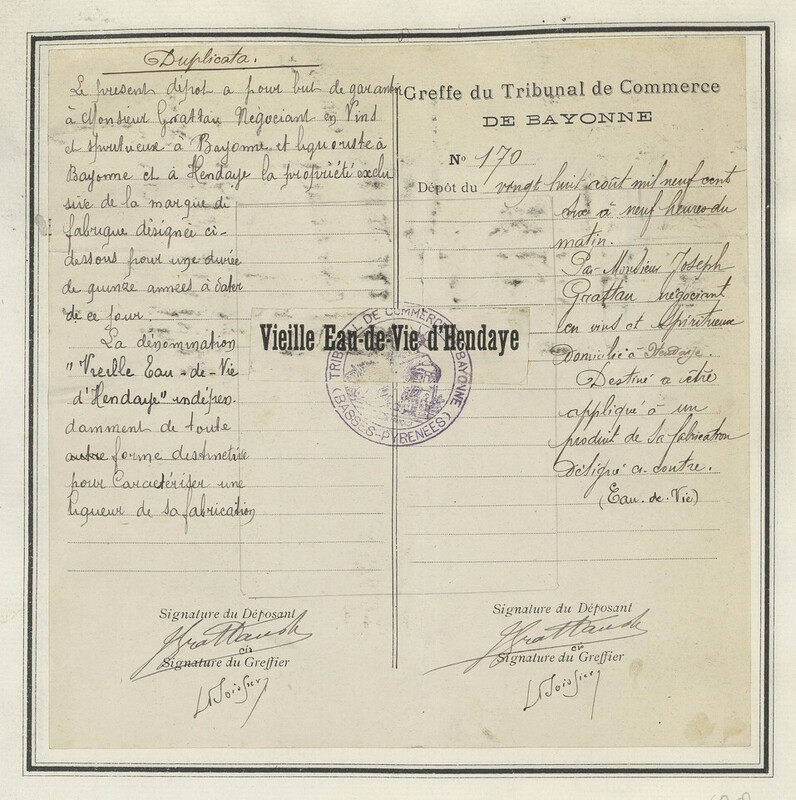 Duplicata.
Le present dépot a pour bût de garantir
à Monsieur Grattau Négociant en Vins
et spiritueux à Bayonne et liquoriste à
Bayonne et à Hendaye la propriété exclu
sive de la marque de
fabrique désignée ci-
dessous pour une durée
de quinze années à dater
de ce jour.
La dénomination
"Vieille Eau-de-Vie
d'Hendaye" indépen-
damment de toute
autre forme distinctive
pour Caractériser une
liqueur de sa fabrication
Signature du Déposant
JGrattau
Signature du Greffier
Greffe du Tribunal de Commerce
DE BAYONNE
No 170
Dépôt du vingt huit août mil neuf cent
six à neuf heures du
matin.
Par Monsieur Joseph
Grattau négociant
en vins et Spiritueux
domicilié à Hendaye.
Destiné a être
appliqué à un
produit de sa fabrication
désigné ci-contre.
(Eau-de-Vie)
Signature du Déposant
JGrattau
Signature du Greffier
Vieille Eau-de-Vie d'Hendaye
TRIBUNAL DE COMMERCE BAYONNE
(BASSES-PYRENÉES)